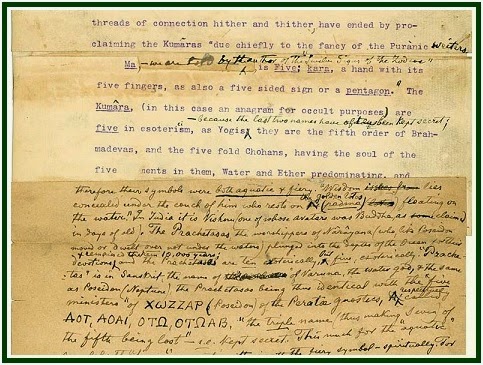 threads of connection hither and thither, have ended by pro-
claiming the Kumâras "due chiefly to the fancy of the Purânic writers
Ma, – we are told by the author of the "Twelve Signs of the Zodiac"
is Five; kara, a hand with its
five fingers, as also a five sided sign or a pentagon." The
Kumâra, (in this case an anagram for occult purposes) are
five in esotericism, as Yogis
– because the last two names have ever been kept secret;
they are the fifth order of Brah-
madevas, and the five fold Chohans, having the soul of the
five ments in them, Water and Ether predominating, and
therefore their symbols were both aquatic & fiery. "Wisdom lies
concealed under the couch of him who rests on the golden Lotus (padma) floating on
the water." In India it is Vishnu (one of whose avatars was Budha, as claimed
in days of old). The Prachetasas, the worshippers of Nârâyana (who like Poseidon
moved or dwelt over not under the waters) plunged into the depths of the Ocean for their
devotions & remained therein 10,000 years; and the Prachetasas are ten exoterically, but five, esoterically. "Prache-
tâs" is in Sanskrit, the name of Varuna, the water god, the same
as Poseidon (Neptune) the Prachetasas being thus identical with the five
ministers" of ΧΩΖΖΑΡ (Poseidon) of the Peratæ gnostics, respectively called
ΑΟΤ, ΑΟΑΙ, ΟΤΩ, ΟΤΩΑΒ, "the triple name (thus making seven)
the fifth being lost" – i.e. kept secret. This much for the "aquatic"
the fiery symbol – spiritually. For